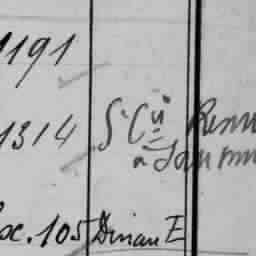 1191
1314 S Cii Renn
a Sau
oc. 105 Dinan E